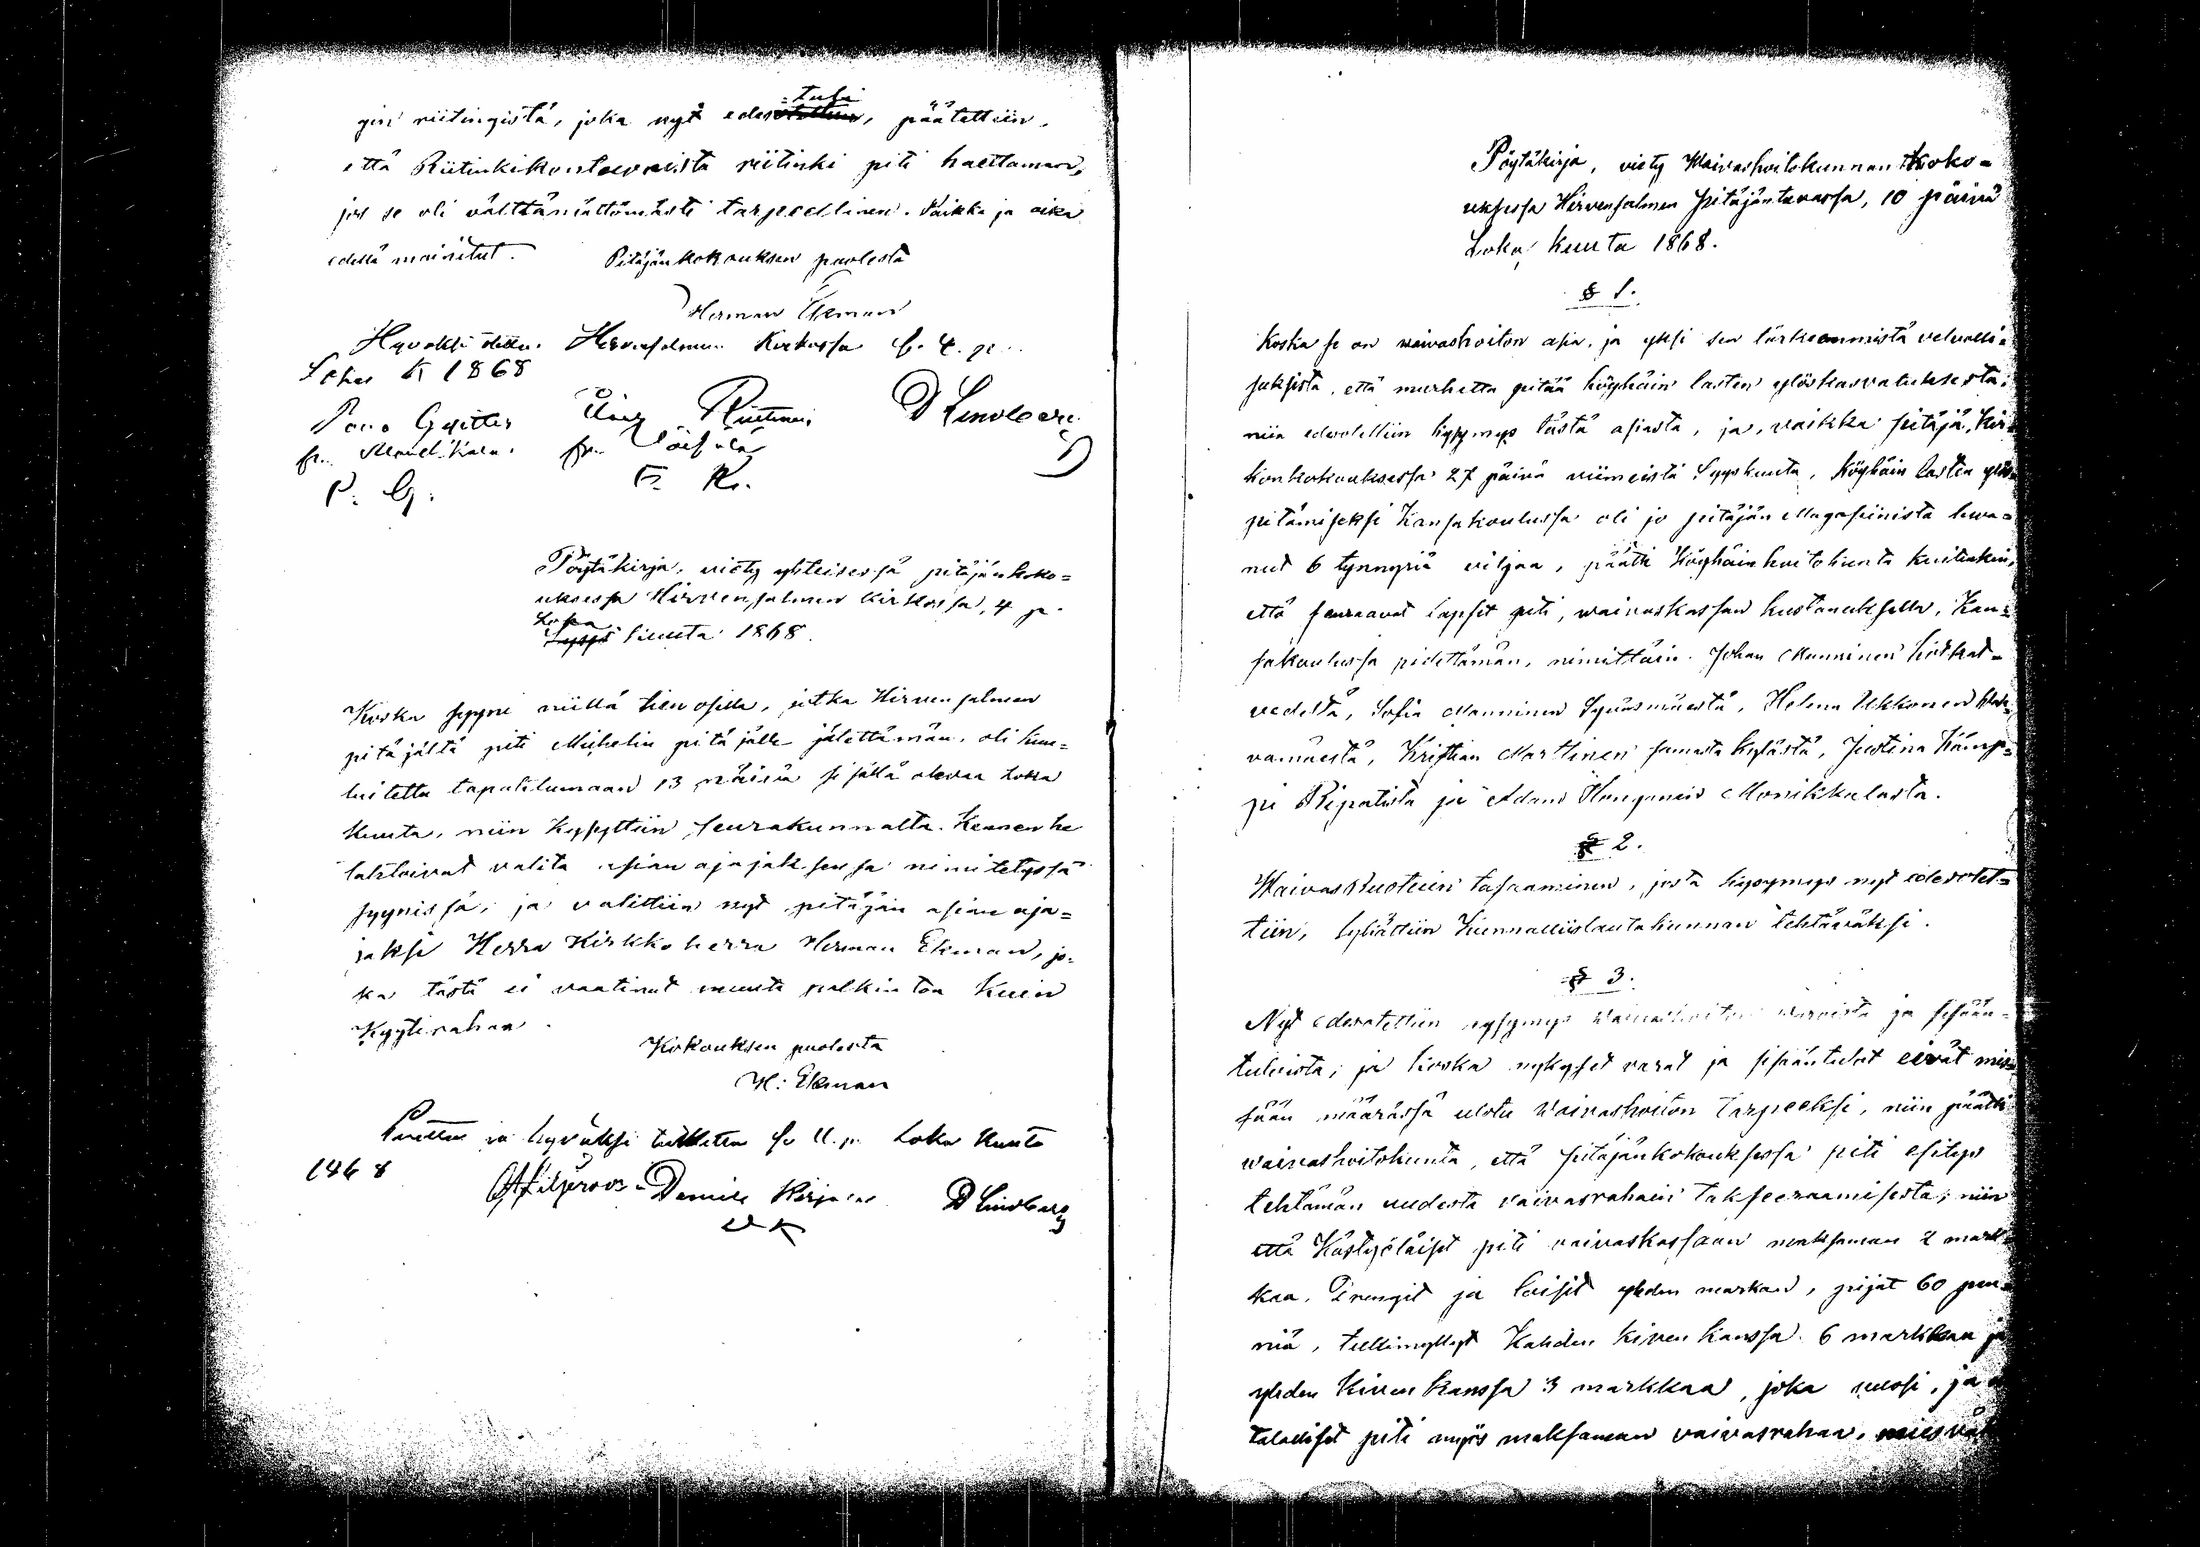 gin riitingistä, joka nyt edes=tuli, päätettiin,
että Riitinkikonttorista riitinki piti haettaman,
jos se oli välttämättömästi tarpeellinen. Paikka ja aika
edellä mainitut. Pitäjänkokouksen puolesta
Herman Ekman
Hyväksi Hirvensalmen Kirkossa 4. p.
Loka K 1868
D Lindberg
P. G. 
Pöytäkirja, viety yhteisessä pitäjänkoko=
uksessa Hirvensalmen kirkossa, 4 p.
Loka
Syys kuuta 1868.
Koska syyni niillä tien osilla, jotka Hirvensalmen
pitäjältä piti Mikkelin pitäjälle jätettämän, oli kuu=
lutettu tapahtumaan 13 päivä sisällä olevaa Loka
kuuta, niin kysyttiin seurakunnalta. Kenen he
tahtoivat valita asian ajajaksensa nimitetyssä
syynissä; ja valittiin nyt pitäjän asian aja=
jaksi Herra Kirkkoherra Herman Ekman, jo=
ka tästä ei vaatinut muuta palkintoa Kuin
Kyytirahan.
Kokouksen puolesta
H: Ekman
Luettu ja hyväksi tutkittu se 11. p. Loka Kuuta
1868
D Lindberg
Pöytäkirja, viety Waivashoitokunnan Koko=
uksessa Hirvensalmen pitäjäntuvassa, 10 päivä
Loka Kuuta 1868.
§ 1.
Koska se on waivashoiton asia, ja yksi sen tärkeämmistä velvolli=
suksista, että murhetta pitää köyhäin lasten ylöskasvatuksesta,
niin edesotettiin kysymys tästä asiasta, ja, vaikka pitäjä, Kir=
konkokouksessa 27 päivä viimeistä Syyskuuta, Köyhäin lasten ylös=
pitämiseksi Kansakoulussa oli jo pitäjän Magasiinista luva=
nut 6 tynnyriä viljaa, päätti Köyhäinhoitokunta kuitenkin,
että seuraavat lapset piti, waivaskassan kustanuksella, Kan=
sakoulussa pidettämän, nimittäin. Johan Manninen
vedeltä, Sofia Manninen Syväsmäestä, Helena Ukkonen
vamäestä, Kristian Marttinen samasta kylästä, Justina Kämp=
pi Ripatista ja Adam Monikkalasta.
§ 2.
Waivasruotuin tasaaminen, josta kysymys nyt edesotet=
tiin, lykättiin Kunnallislautakunnan tehtäväksi.
§ 3.
Nyt edesotettiin kysymys Waivashoiton varoista ja sisään=
tuloista; ja koska nykyset varat ja sisääntulot eivät mis=
sään määrässä ulotu Waivashoiton tarpeeksi, niin päätti
waivashoitokunta, että pitäjänkokouksessa piti esitys
tehtämän uudesta vaivasrahain takseeraamisesta; niin
että Kästyöläiset piti vaivaskassaan maksaman 2 mark=
kaa, Trengit ja loisit yhden markan, piijat 60 pen=
niä, tullimyllyt Kahden kiven kanssa 6 markkaa ja
yhden Kiven kanssa 3 markkaa, joka vuosi, ja
talolliset piti myös maksaman vaivasrahaa,